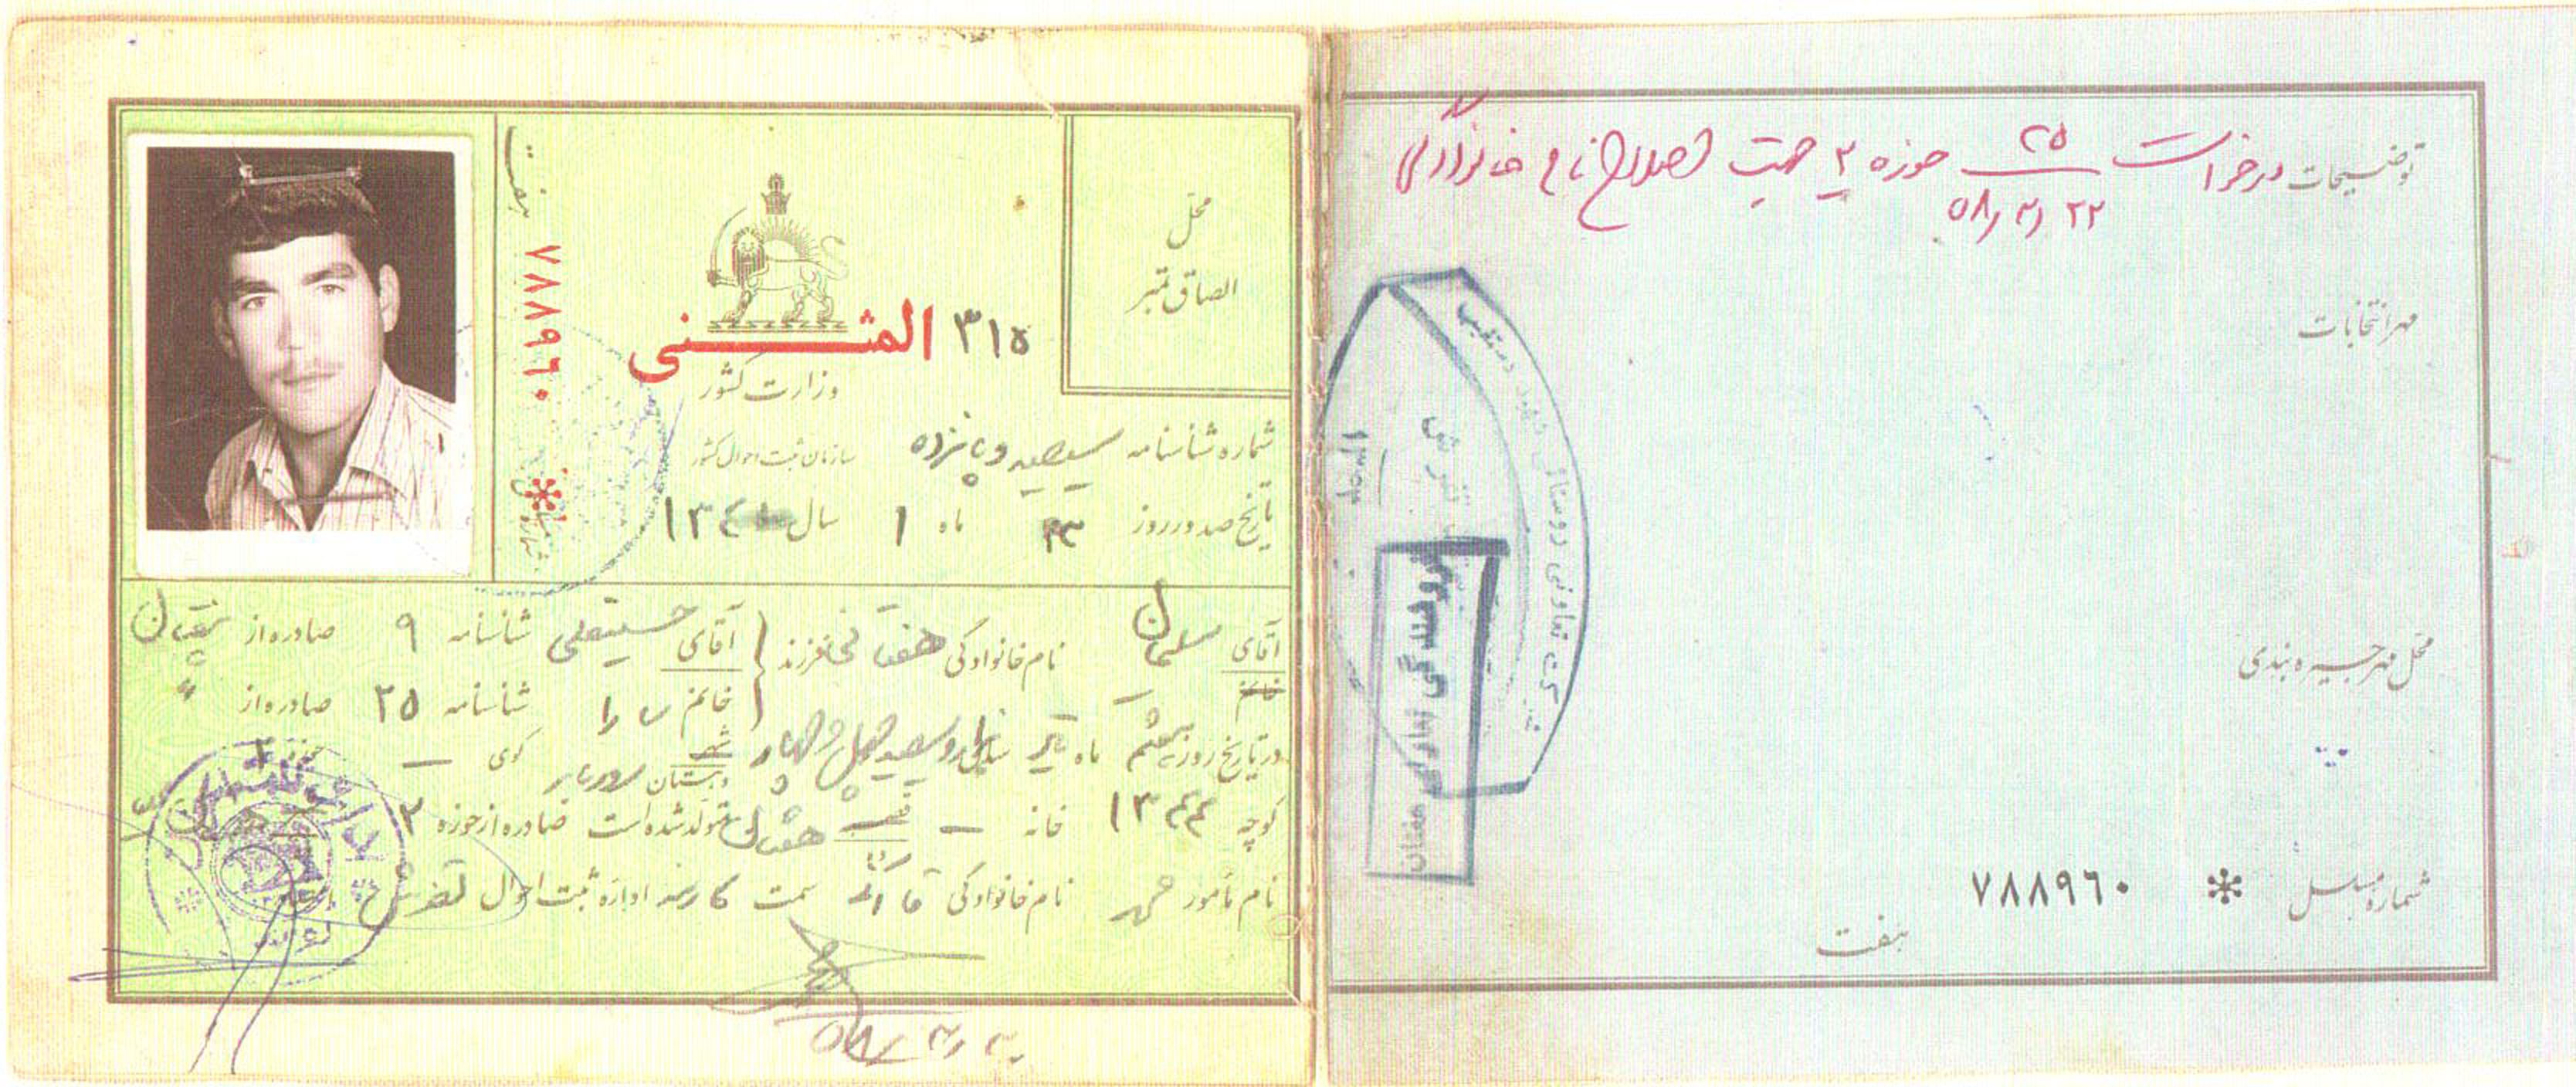 توضیحات درخواست ۲۵ حوزه ۲ جهت اصلاح نام خانوادگی
۵۸٫۳٫۲۲
مهر انتخابات
محل مهر جیره بندی
شماره مسلسل * ۷۸۸۹۶۰
هفت
شرکت تعاونی روستائی
تفرش
نمایندگی
محل
الصاق تمبر
۳۱۵ المثنی
وزارت کشور
سازمان ثبت احوال کشور
شماره شناسنامه سیصد و پانزده
تاریخ صدور روز ۲۳ ماه ۱ سال
هفت
۷۸۸۹۶۰
*
آقای سلمان نام خانوادگی فرزند آقای حسینعلی شناسنامه ۹ صادره از
خانم
خانم سارا شناسنامه ۲۵ صادره از "
در تاریخ روز هشتم ماه تیر سال هزار و سیصد چهل و چهار شهر کوی —
دهستان رودبار
کوچه ۱۳۴۴ خانه — قصبه متولد شده است صادره از حوزه ۲
نام مأمور نام خانوادگی سمت کارمند اداره ثبت احوال تفرش
۵۸٫۳٫